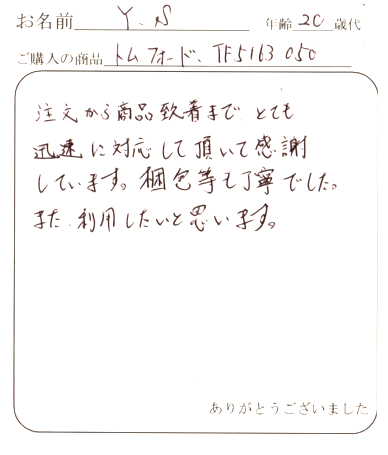 お名前 Y.N 年齢 20 歳代
ご購入の商品 トムフォード、TF5163 050
注文から商品致着まで とても
迅速に対応して頂いて感謝
しています。梱包等も丁寧でした。
また 利用したいと思います。
ありがとうございました